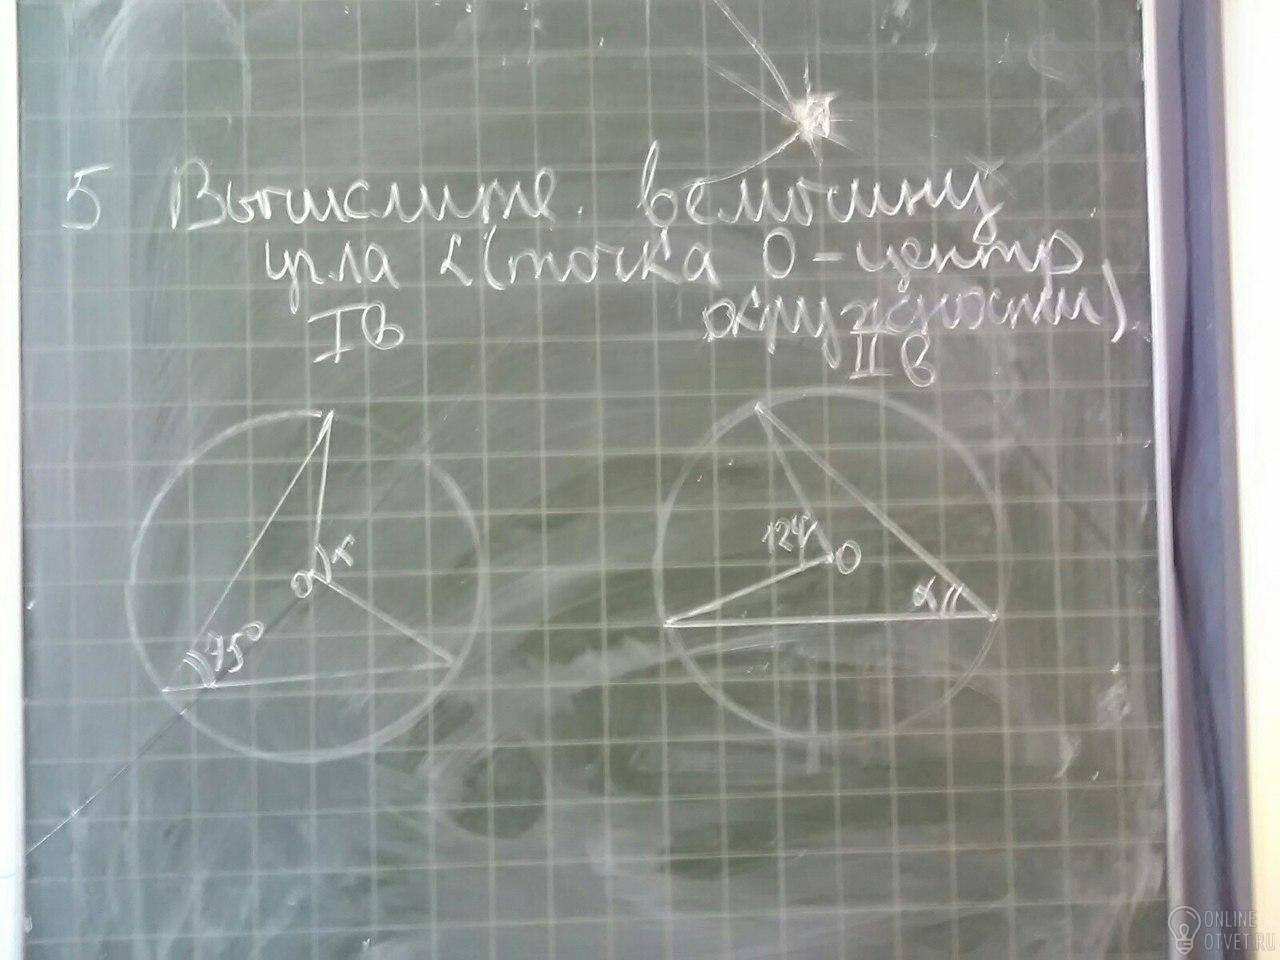 5 Вычислите величину
угла α (точка О - центр
окружности).
I в
II в
α
O
75°
124°
O
α
ONLINE
OTVET.RU